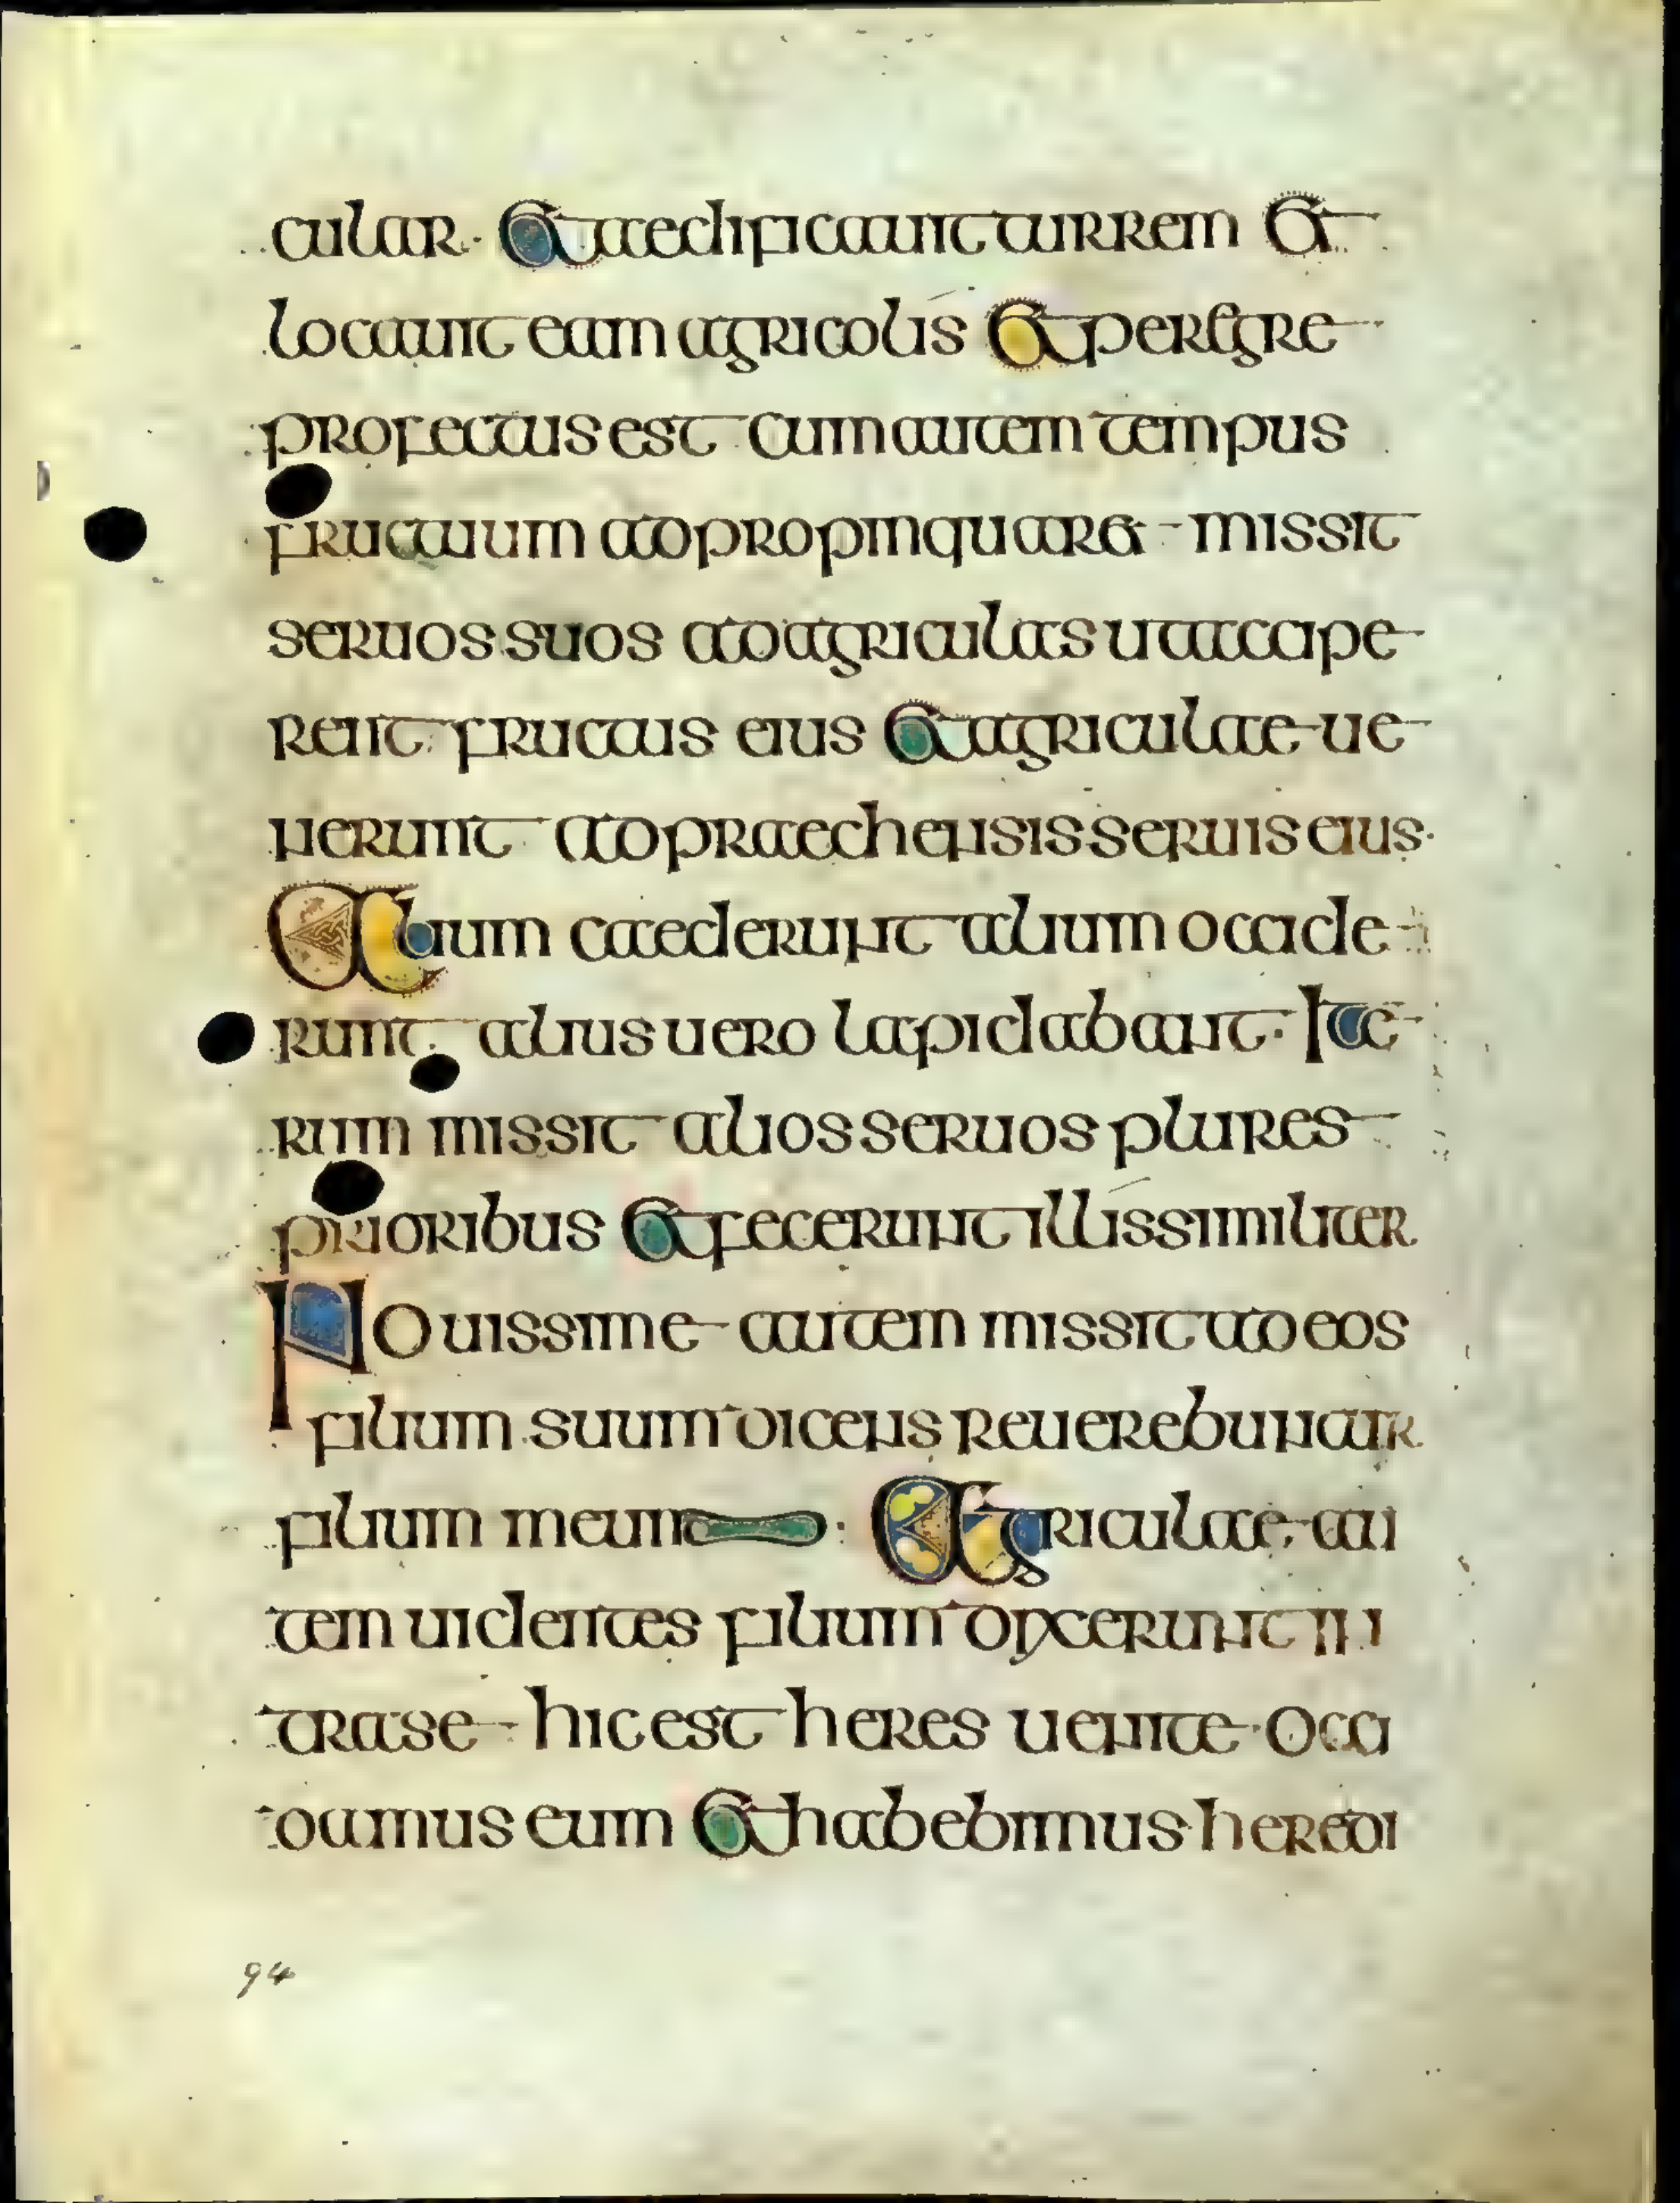 cular · Et aedificauit turrem et
locauit eam agricolis Et peregre
profectus est cum autem tempus
fructuum adpropinquaret missit
seruos suos ad agriculas ut accipe
rent fructus eius Et agriculae ue
nerunt adpraechensis seruis eius·
Alium caederunt alium occide
runt alius uero lapidabant· Ite
rum missit alios seruos plures
prioribus Et fecerunt illis similiter
Nouissime autem missit ad eos
filium suum dicens reuerebuntur
filium meum : Agriculae au
tem uidentes filium dixerunt in
tra se hic est heres uenite occi
damus eum Et habebimus heredi
94